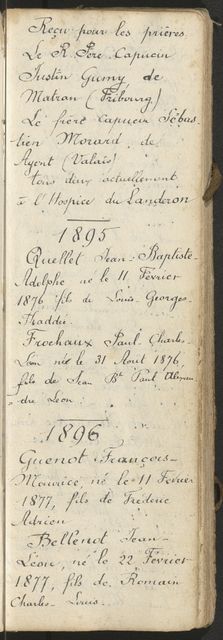 Reçu pour les prières
Le R. Père Capucin
Justin Gumy de
Matran (Fribourg)
Le frère Capucin Sébas
tien Morard, de
Ayent (Valais)
tous deux actuellement
à l'Hospice du Landeron
1895
Quellet Jean-Baptiste-
Adolphe né le 11 Février
1876 fils de Louis Georges
Thaddée
Frochaux Paul Charles
Léon né le 31 Aout 1876
fils de Jean Bte Paul Alexan
dre Léon
1896
Guenot François-
Maurice, né le 11 Février
1877, fils de Fréderic
Adrien
Bellenot Jean-
Léon, né le 22 Février
1877, fils de Romain
Charles-Louis.